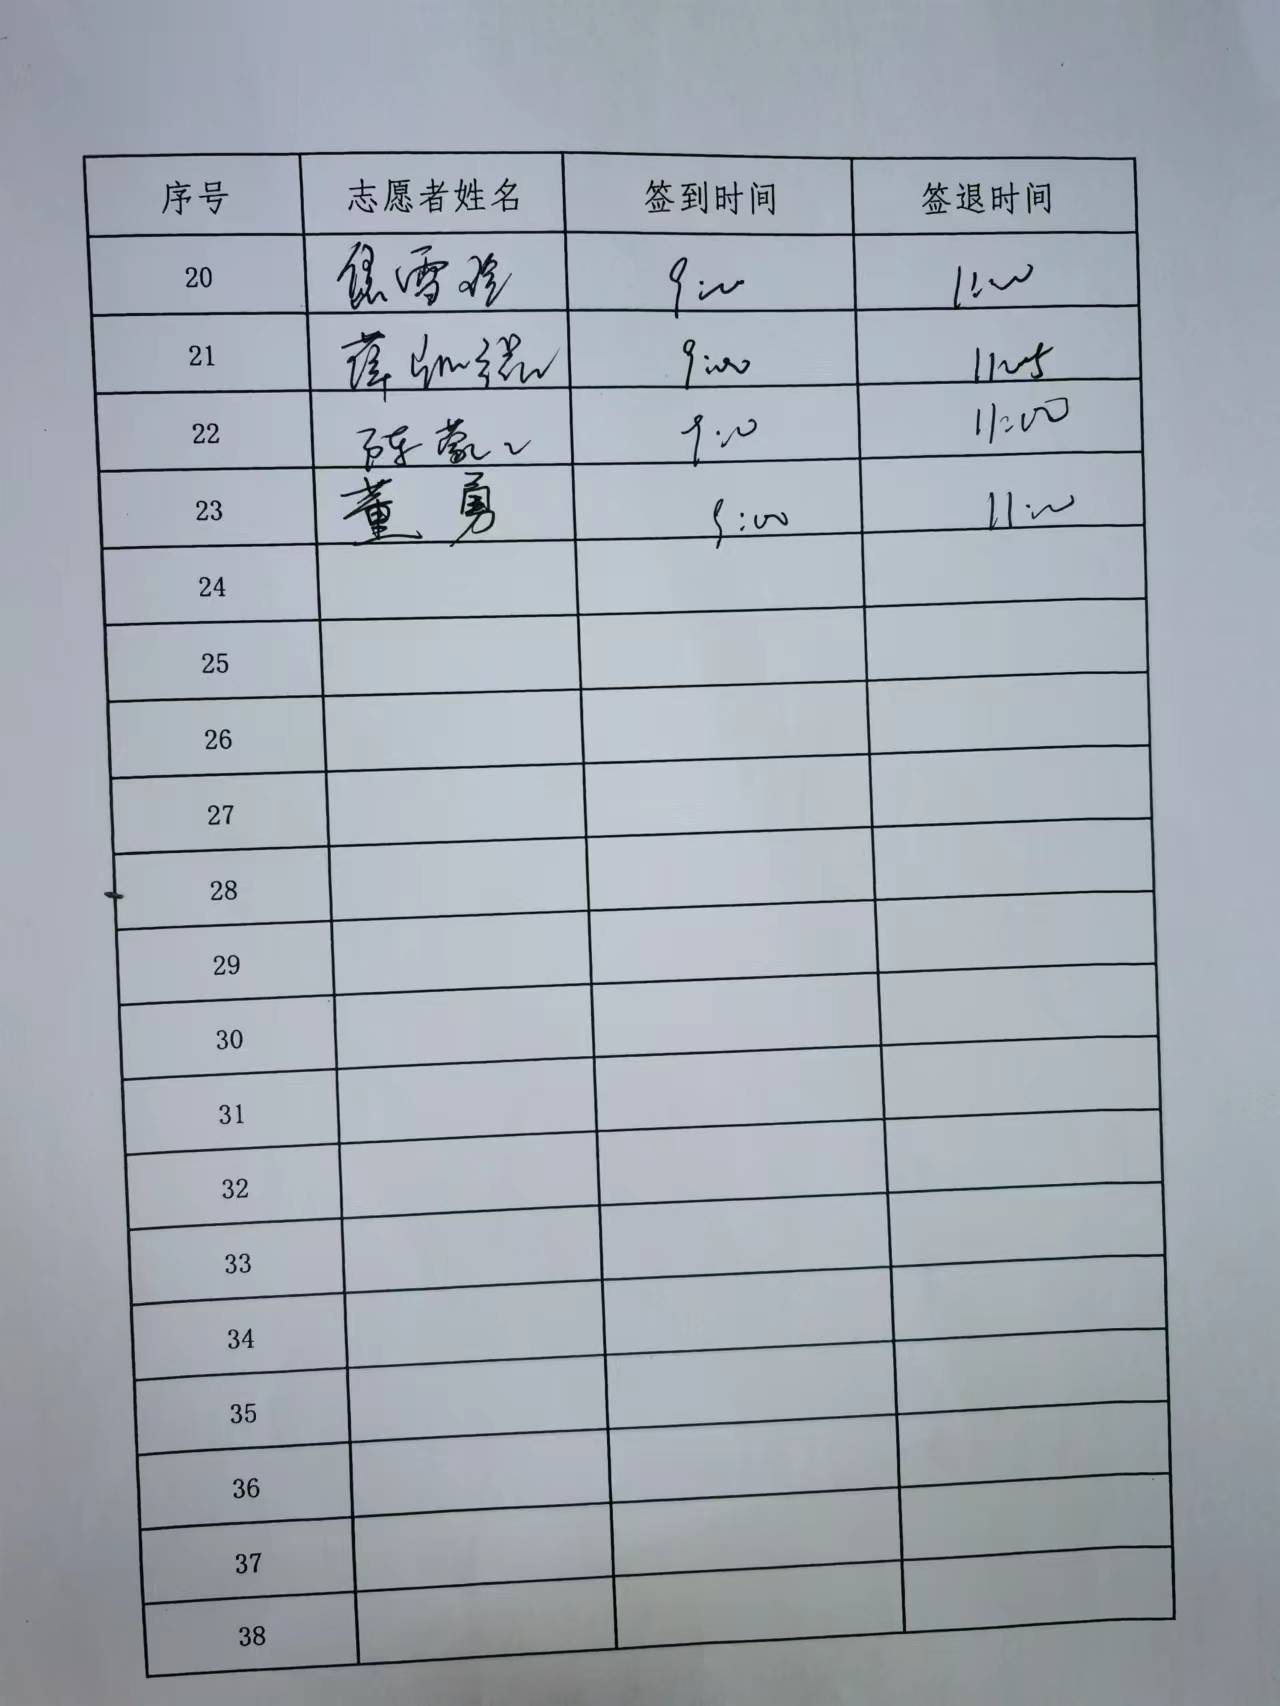 序号 志愿者姓名 签到时间 签退时间
20 雪 9:00 11:00
21 薛 9:00 11:05
22 陈蒙 9:00 11:00
23 董勇 9:00 11:00
24
25
26
27
28
29
30
31
32
33
34
35
36
37
38